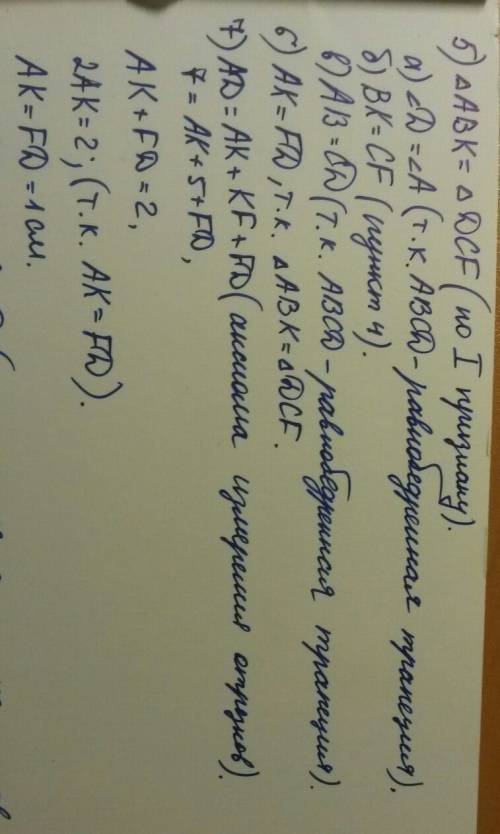 5) △ABK = △DCF (по I признаку).
а) ∠D = ∠A (т.к. ABCD - равнобедренная трапеция).
б) BK = CF (пункт 4).
в) AB = CD (т.к. ABCD - равнобедренная трапеция).
6) AK = FD, т.к. △ABK = △DCF.
7) AD = AK + KF + FD (аксиома измерения отрезков).
7 = AK + 5 + FD,
AK + FD = 2,
2AK = 2; (т.к. AK = FD).
AK = FD = 1 см.